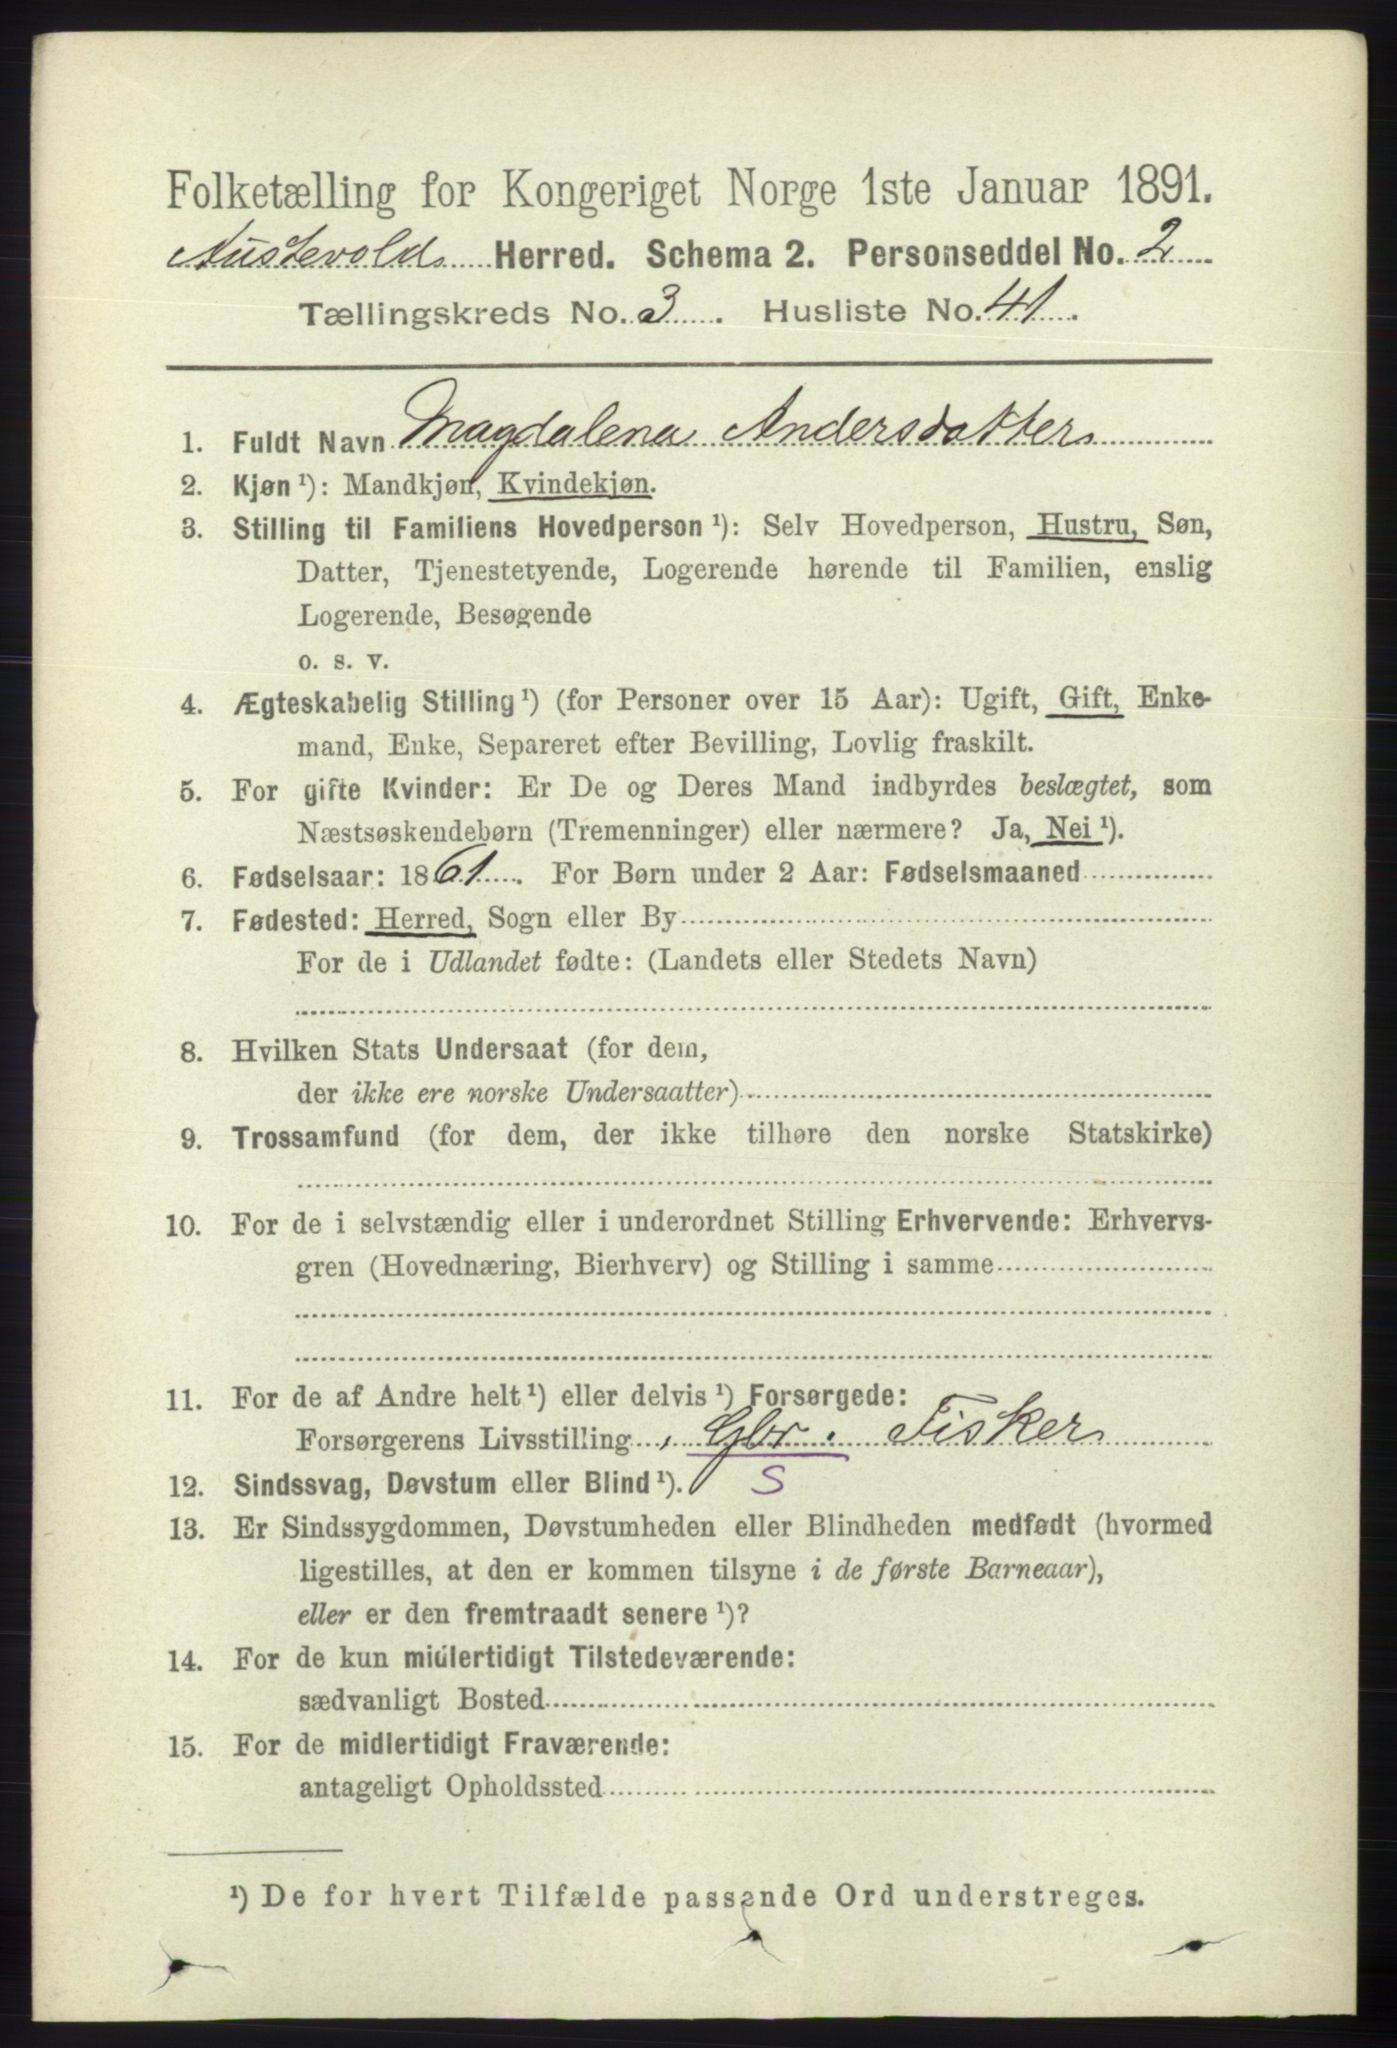 Folketælling for Kongeriget Norge 1ste Januar 1891.
Austevold Herred. Schema 2. Personseddel No. 2
Tællingskreds No. 3. Husliste No. 41.
1. Fuldt Navn Magdalena Andersdatter
2. Kjøn ¹): Mandkjøn, Kvindekjøn.
3. Stilling til Familiens Hovedperson ¹): Selv Hovedperson, Hustru, Søn,
Datter, Tjenestetyende, Logerende hørende til Familien, enslig
Logerende, Besøgende
o. s. v.
4. Ægteskabelig Stilling ¹) (for Personer over 15 Aar): Ugift, Gift, Enke-
mand, Enke, Separeret efter Bevilling, Lovlig fraskilt.
5. For gifte Kvinder: Er De og Deres Mand indbyrdes beslægtet, som
Næstsøskendebørn (Tremenninger) eller nærmere? Ja, Nei ¹).
6. Fødselsaar: 1861. For Børn under 2 Aar: Fødselsmaaned
7. Fødested: Herred, Sogn eller By
For de i Udlandet fødte: (Landets eller Stedets Navn)
8. Hvilken Stats Undersaat (for dem,
der ikke ere norske Undersaatter)
9. Trossamfund (for dem, der ikke tilhøre den norske Statskirke)
10. For de i selvstændig eller i underordnet Stilling Erhvervende: Erhvervs-
gren (Hovednæring, Bierhverv) og Stilling i samme
11. For de af Andre helt ¹) eller delvis ¹) Forsørgede:
Forsørgerens Livsstilling Gbr. Fisker
12. Sindssvag, Døvstum eller Blind ¹). S
13. Er Sindssygdommen, Døvstumheden eller Blindheden medfødt (hvormed
ligestilles, at den er kommen tilsyne i de første Barneaar),
eller er den fremtraadt senere ¹)?
14. For de kun midlertidigt Tilstedeværende:
sædvanligt Bosted
15. For de midlertidigt Fraværende:
antageligt Opholdssted
¹) De for hvert Tilfælde passende Ord understreges.